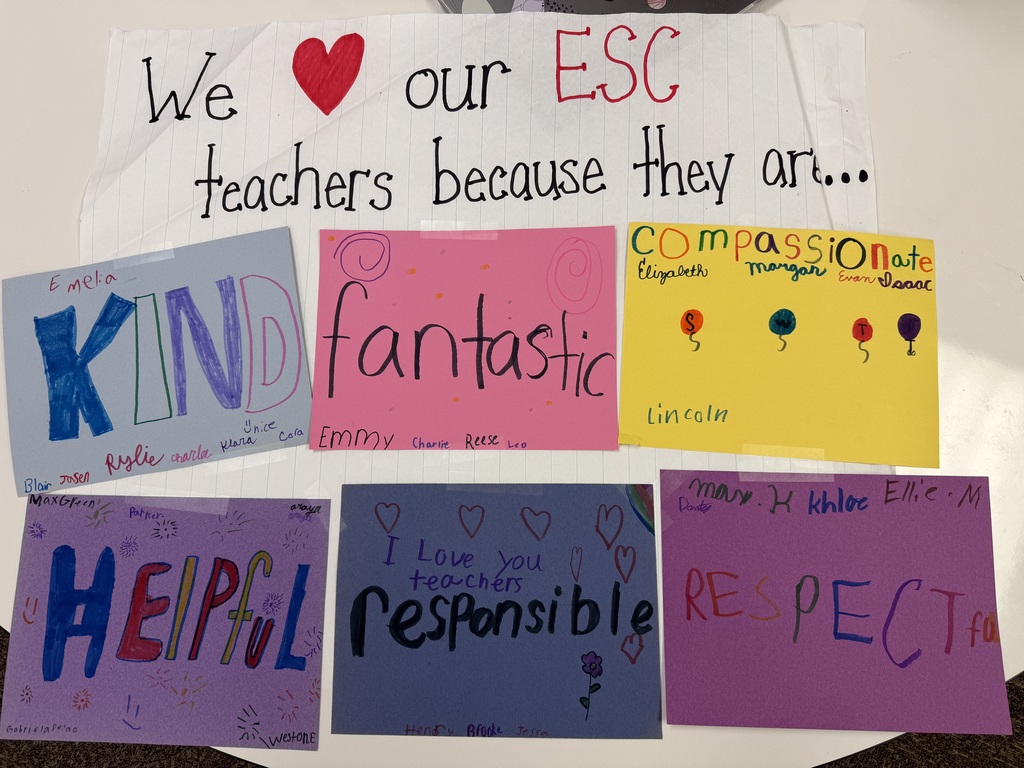 We ❤ our ESC
teachers because they are...
Emelia
KIND
Blair Josen Rylie Charlie Klara Unice Cora
fantastic
Emmy Charlie Reese Leo
compassionate
Elizabeth margan Evan Isaac
S W T
Lincoln
Max Green Parker
HElPfuL
Gabriela Pelae WestonE
I Love you
teachers
responsible
Hendry Brooke Jessa
Dante max. K khloe Ellie. M
RESPECT